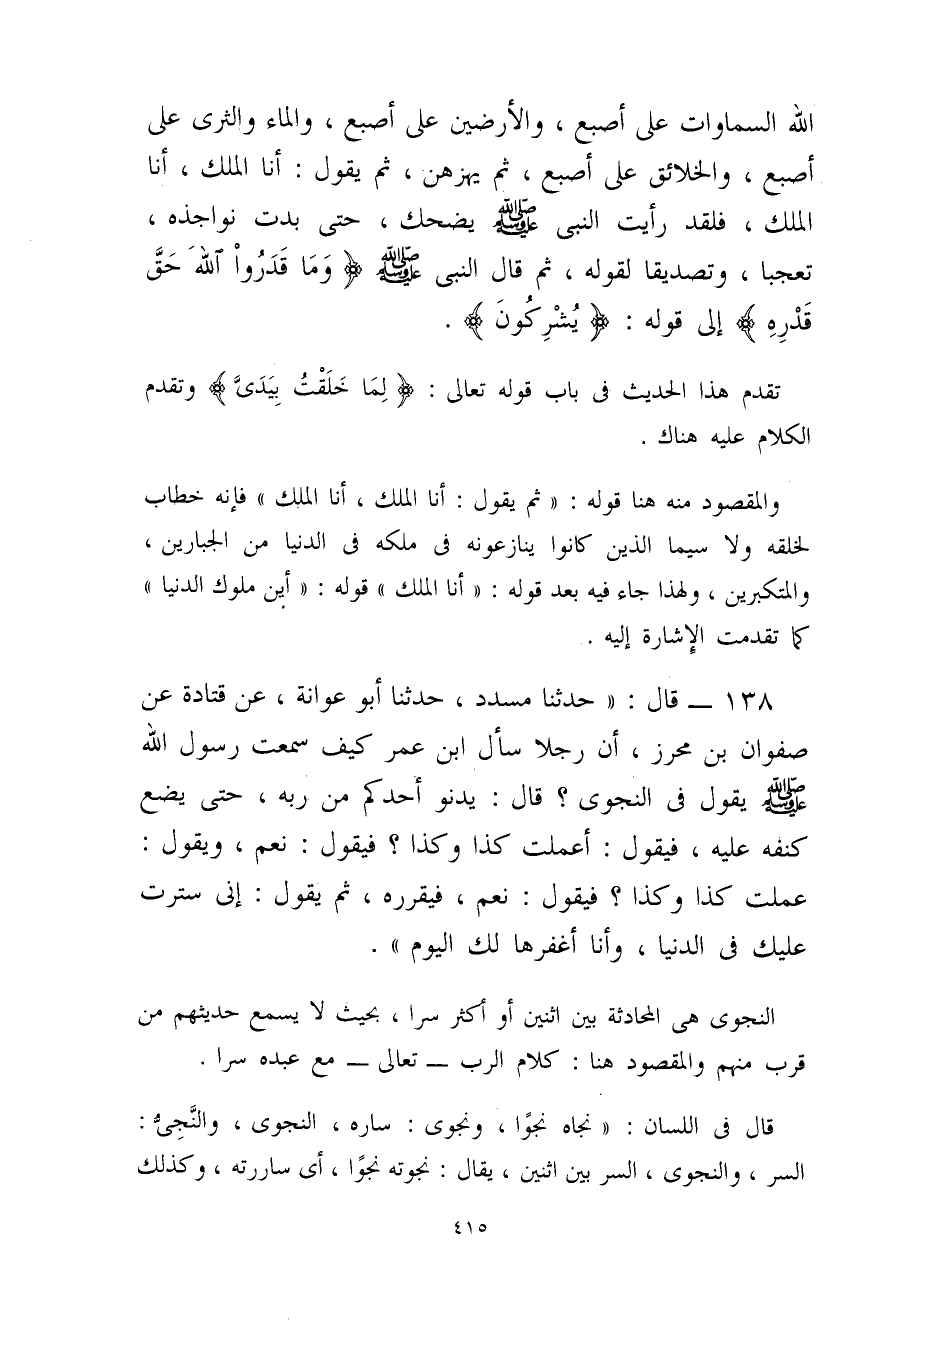 الله السماوات على أصبع ، والأرضين على أصبع ، والماء والثرى على
أصبع ، والخلائق على أصبع ، ثم يهزهن ، ثم يقول : أنا الملك ، أنا
الملك ، فلقد رأيت النبى ﷺ يضحك ، حتى بدت نواجذه ،
تعجبا ، وتصديقا لقوله ، ثم قال النبى ﷺ ﴿ وَمَا قَدَرُواْ ٱللهَ حَقَّ
قَدْرِهِ ﴾ إلى قوله : ﴿ يُشْرِكُونَ ﴾ .
تقدم هذا الحديث فى باب قوله تعالى : ﴿ لِمَا خَلَقْتُ بِيَدَىَّ ﴾ وتقدم
الكلام عليه هناك .
والمقصود منه هنا قوله : « ثم يقول : أنا الملك ، أنا الملك » فإنه خطاب
لخلقه ولا سيما الذين كانوا ينازعونه فى ملكه فى الدنيا من الجبارين ،
والمتكبرين ، ولهذا جاء فيه بعد قوله : « أنا الملك » قوله : « أين ملوك الدنيا »
كما تقدمت الإشارة إليه .
١٣٨ ــ قال : « حدثنا مسدد ، حدثنا أبو عوانة ، عن قتادة عن
صفوان بن محرز ، أن رجلا سأل ابن عمر كيف سمعت رسول الله
ﷺ يقول فى النجوى ؟ قال : يدنو أحدكم من ربه ، حتى يضع
كنفه عليه ، فيقول : أعملت كذا وكذا ؟ فيقول : نعم ، ويقول :
عملت كذا وكذا ؟ فيقول : نعم ، فيقرره ، ثم يقول : إنى سترت
عليك فى الدنيا ، وأنا أغفرها لك اليوم » .
النجوى هى المحادثة بين اثنين أو أكثر سرا ، بحيث لا يسمع حديثهم من
قرب منهم والمقصود هنا : كلام الرب ــ تعالى ــ مع عبده سرا .
قال فى اللسان : « نجاه نجوًا ، ونجوى : ساره ، النجوى ، والنَّجِىُّ :
السر ، والنجوى ، السر بين اثنين ، يقال : نجوته نجوًا ، أى ساررته ، وكذلك
٤١٥